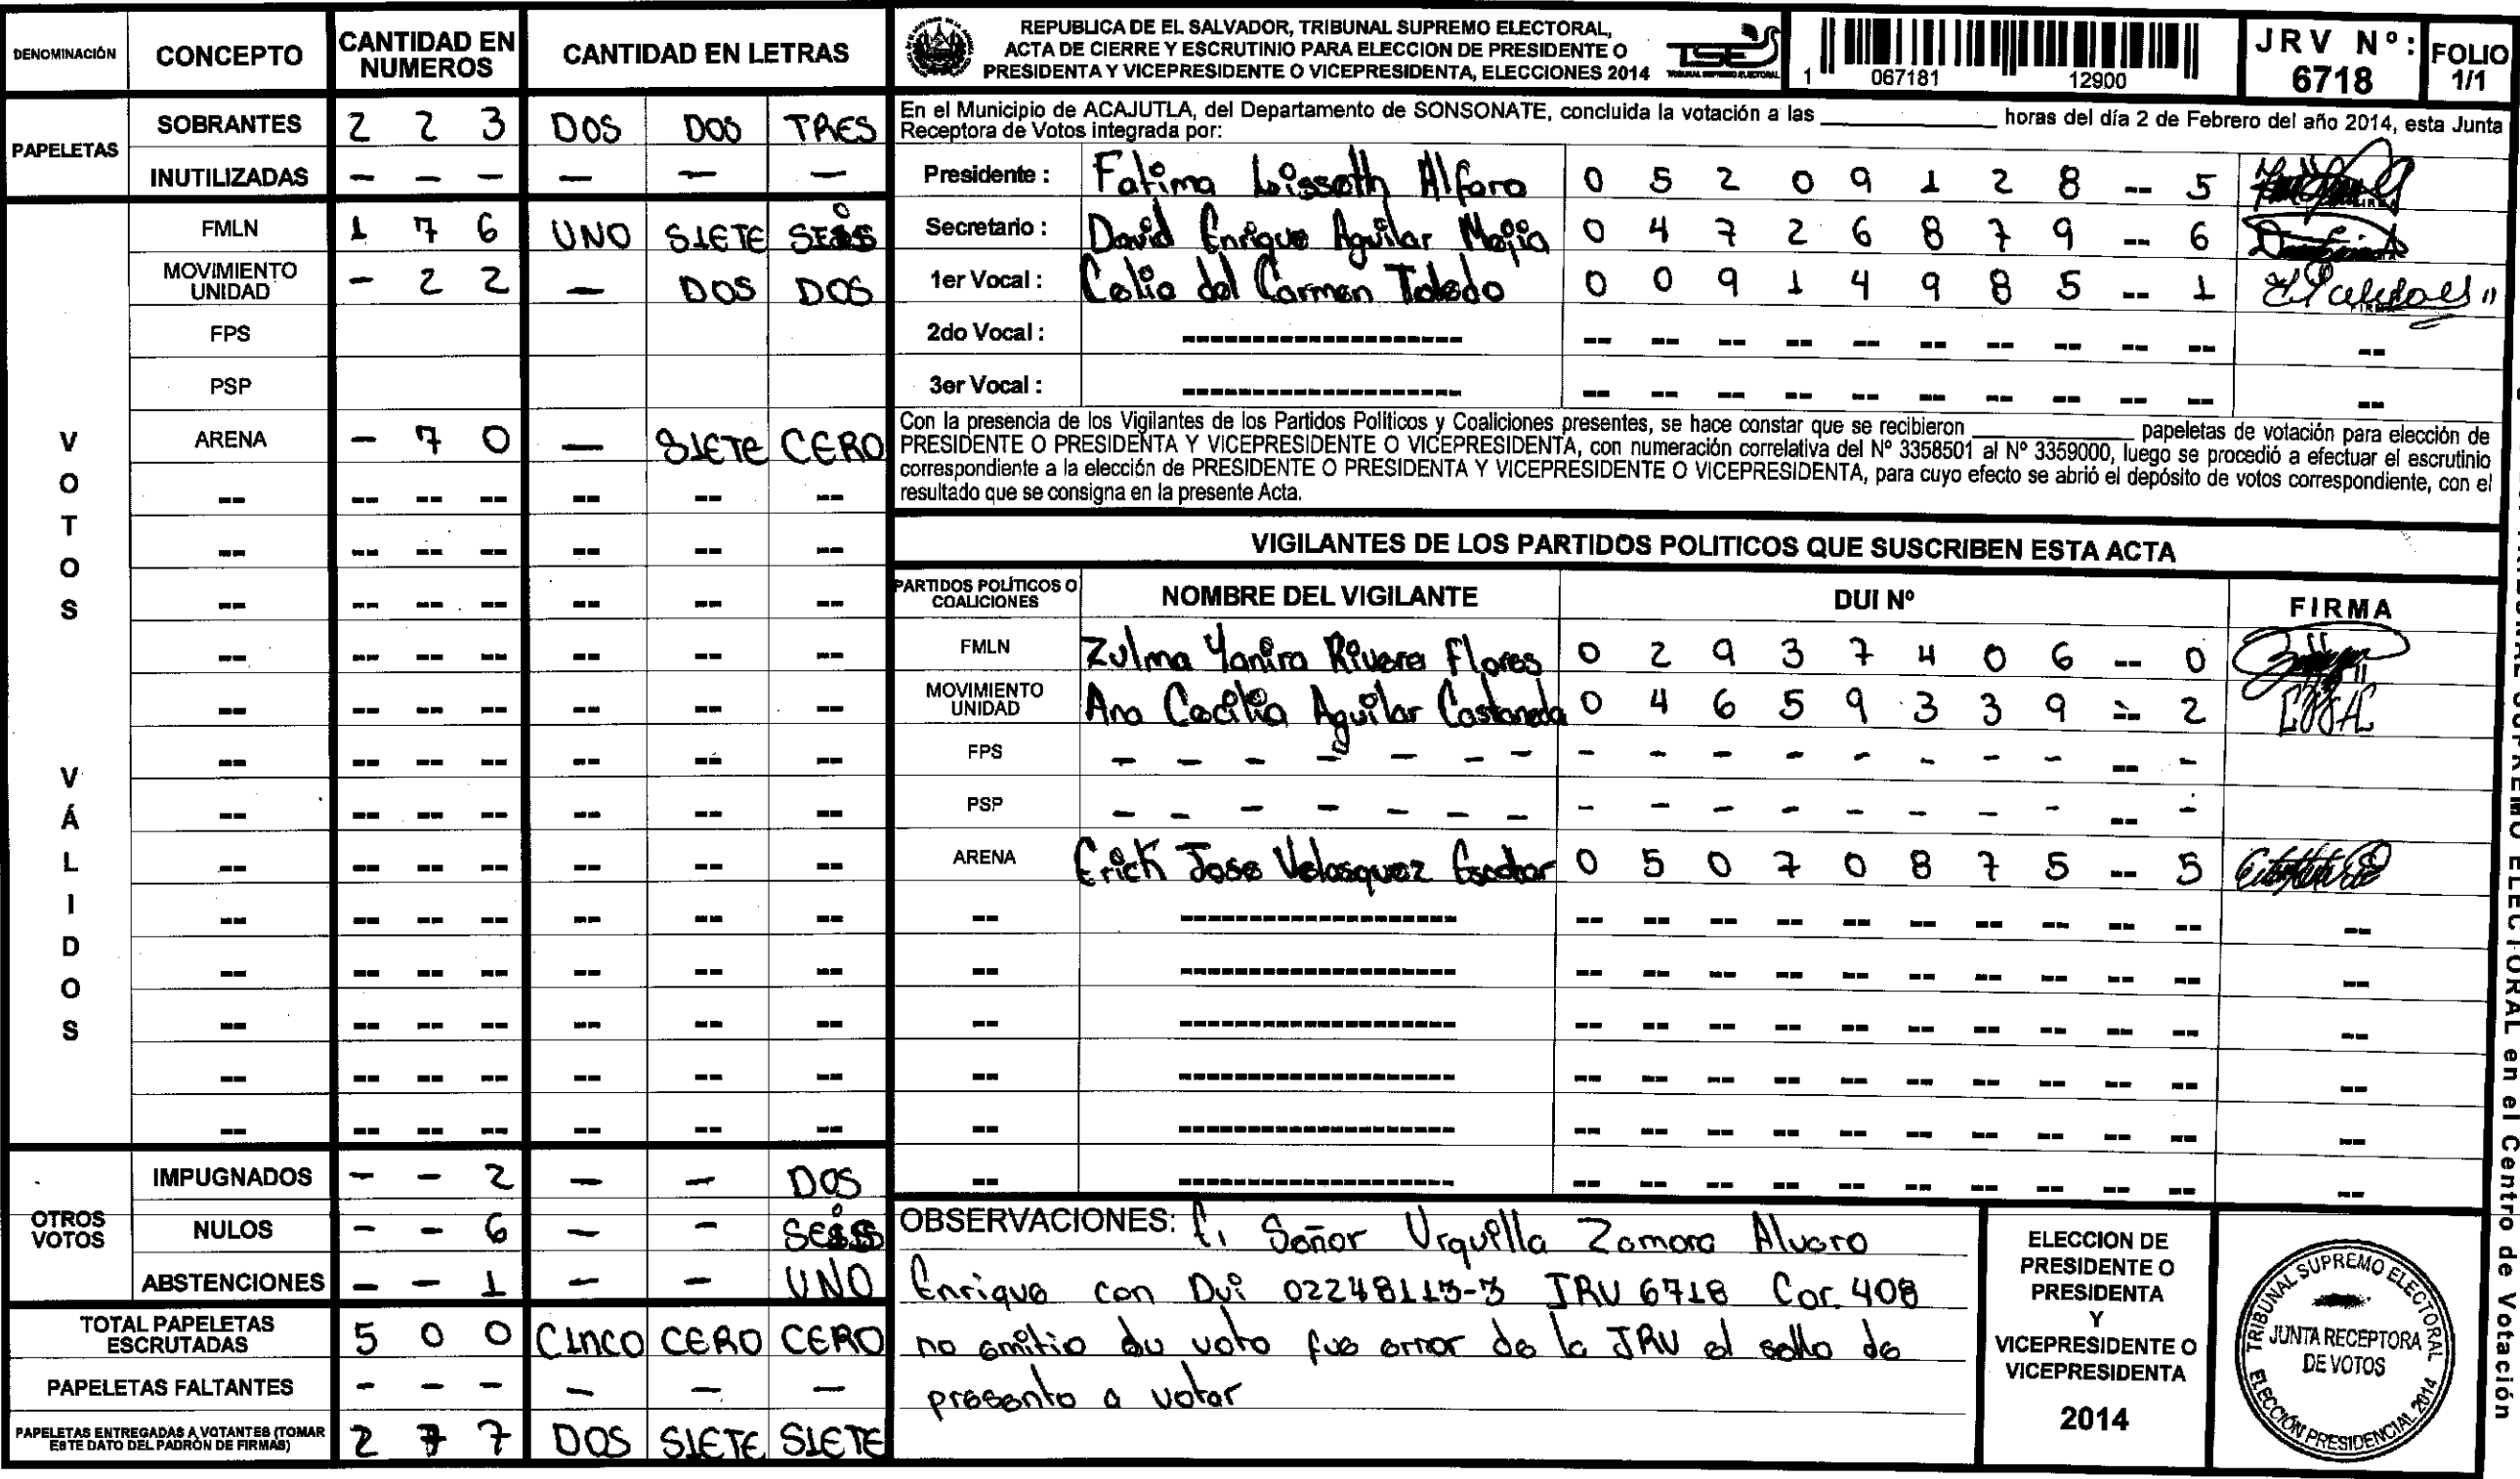 DENOMINACIÓN CONCEPTO CANTIDAD EN NUMEROS CANTIDAD EN LETRAS
PAPELETAS
SOBRANTES 2 2 3 DOS DOS TRES
INUTILIZADAS - - - - - -
VOTOS VÁLIDOS
FMLN 1 7 6 UNO SIETE SEIS
MOVIMIENTO UNIDAD - 2 2 - DOS DOS
FPS
PSP
ARENA - 7 0 - SIETE CERO
-- -- -- -- -- -- --
-- -- -- -- -- -- --
-- -- -- -- -- -- --
-- -- -- -- -- -- --
-- -- -- -- -- -- --
-- -- -- -- -- -- --
-- -- -- -- -- -- --
-- -- -- -- -- -- --
-- -- -- -- -- -- --
-- -- -- -- -- -- --
-- -- -- -- -- -- --
-- -- -- -- -- -- --
-- -- -- -- -- -- --
OTROS VOTOS
IMPUGNADOS - - 2 - - DOS
NULOS - - 6 - - SEIS
ABSTENCIONES - - 1 - - UNO
TOTAL PAPELETAS ESCRUTADAS 5 0 0 CINCO CERO CERO
PAPELETAS FALTANTES - - - - - -
PAPELETAS ENTREGADAS A VOTANTES (TOMAR ESTE DATO DEL PADRÓN DE FIRMAS) 2 7 7 DOS SIETE SIETE
REPUBLICA DE EL SALVADOR, TRIBUNAL SUPREMO ELECTORAL,
ACTA DE CIERRE Y ESCRUTINIO PARA ELECCION DE PRESIDENTE O
PRESIDENTA Y VICEPRESIDENTE O VICEPRESIDENTA, ELECCIONES 2014
TSE
TRIBUNAL SUPREMO ELECTORAL
1 067181 12900
JRV Nº: 6718
FOLIO 1/1
En el Municipio de ACAJUTLA, del Departamento de SONSONATE, concluida la votación a las ____ horas del día 2 de Febrero del año 2014, esta Junta
Receptora de Votos integrada por:
Presidente : Fatima Lisseth Alfaro 0 5 2 0 9 1 2 8 -- 5
Secretario : David Enrique Aguilar Mejia 0 4 7 2 6 8 7 9 -- 6
1er Vocal : Celia del Carmen Toledo 0 0 9 1 4 9 8 5 -- 1
2do Vocal : -------------------- -- -- -- -- -- -- -- -- -- -- --
3er Vocal : -------------------- -- -- -- -- -- -- -- -- -- -- --
Con la presencia de los Vigilantes de los Partidos Políticos y Coaliciones presentes, se hace constar que se recibieron ____ papeletas de votación para elección de
PRESIDENTE O PRESIDENTA Y VICEPRESIDENTE O VICEPRESIDENTA, con numeración correlativa del Nº 3358501 al Nº 3359000, luego se procedió a efectuar el escrutinio
correspondiente a la elección de PRESIDENTE O PRESIDENTA Y VICEPRESIDENTE O VICEPRESIDENTA, para cuyo efecto se abrió el depósito de votos correspondiente, con el
resultado que se consigna en la presente Acta.
VIGILANTES DE LOS PARTIDOS POLITICOS QUE SUSCRIBEN ESTA ACTA
PARTIDOS POLÍTICOS O COALICIONES NOMBRE DEL VIGILANTE DUI Nº FIRMA
FMLN Zulma Yanira Rivera Flores 0 2 9 3 7 4 0 6 -- 0
MOVIMIENTO UNIDAD Ana Cecilia Aguilar Castaneda 0 4 6 5 9 3 3 9 -- 2
FPS - - - - - - - - - - - - - - - -- -
PSP - - - - - - - - - - - - - - - -- -
ARENA Erick Jose Velasquez Escobar 0 5 0 7 0 8 7 5 -- 5
-- -------------------- -- -- -- -- -- -- -- -- -- -- --
-- -------------------- -- -- -- -- -- -- -- -- -- -- --
-- -------------------- -- -- -- -- -- -- -- -- -- -- --
-- -------------------- -- -- -- -- -- -- -- -- -- -- --
-- -------------------- -- -- -- -- -- -- -- -- -- -- --
-- -------------------- -- -- -- -- -- -- -- -- -- -- --
OBSERVACIONES: El Señor Urquilla Zamora Alvaro
Enrique con Dui 02248113-3 JRV 6718 Cor. 408
no emitio su voto fue error de la JRV el sello de
presento a votar
ELECCION DE
PRESIDENTE O
PRESIDENTA
Y
VICEPRESIDENTE O
VICEPRESIDENTA
2014
TRIBUNAL SUPREMO ELECTORAL
JUNTA RECEPTORA
DE VOTOS
ELECCIÓN PRESIDENCIAL 2014
TRIBUNAL SUPREMO ELECTORAL en el Centro de Votación